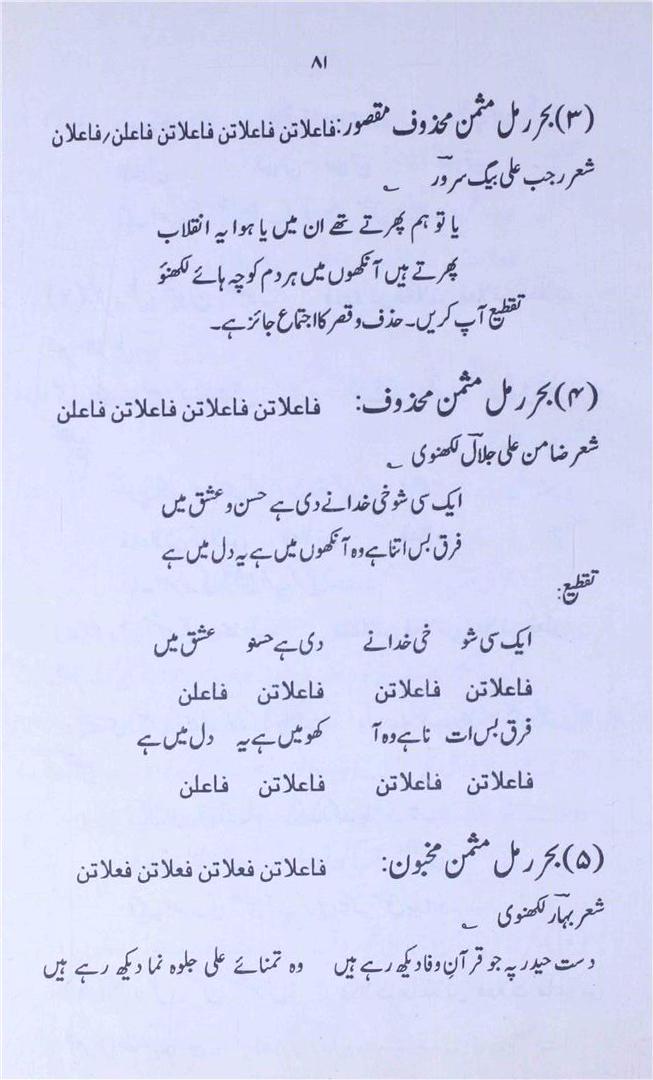 ۸۱
(۳) بحر رمل مثمن محذوف مقصور: فاعلاتن فاعلاتن فاعلاتن فاعلن/فاعلان
شعر رجب علی بیگ سرورؔ ؎
یا تو ہم پھرتے تھے ان میں یا ہوا یہ انقلاب
پھرتے ہیں آنکھوں میں ہر دم کوچہ ہائے لکھنؤ
تقطیع آپ کریں۔ حذف و قصر کا اجتماع جائز ہے۔
(۴) بحر رمل مثمن محذوف: فاعلاتن فاعلاتن فاعلاتن فاعلن
شعر ضامن علی جلالؔ لکھنوی ؎
ایک سی شوخی خدا نے دی ہے حسن و عشق میں
فرق بس اتنا ہے وہ آنکھوں میں ہے یہ دل میں ہے
تقطیع:
ایک سی شو خی خدا نے دی ہے حسنو عشق میں
فاعلاتن فاعلاتن فاعلاتن فاعلن
فرق بس ات نا ہے وہ آ کھو میں ہے یہ دل میں ہے
فاعلاتن فاعلاتن فاعلاتن فاعلن
(۵) بحر رمل مثمن مخبون: فاعلاتن فعلاتن فعلاتن فعلاتن
شعر بہارؔ لکھنوی ؎
دست حیدر پہ جو قرآنِ وفا دیکھ رہے ہیں وہ تمنائے علی جلوہ نما دیکھ رہے ہیں